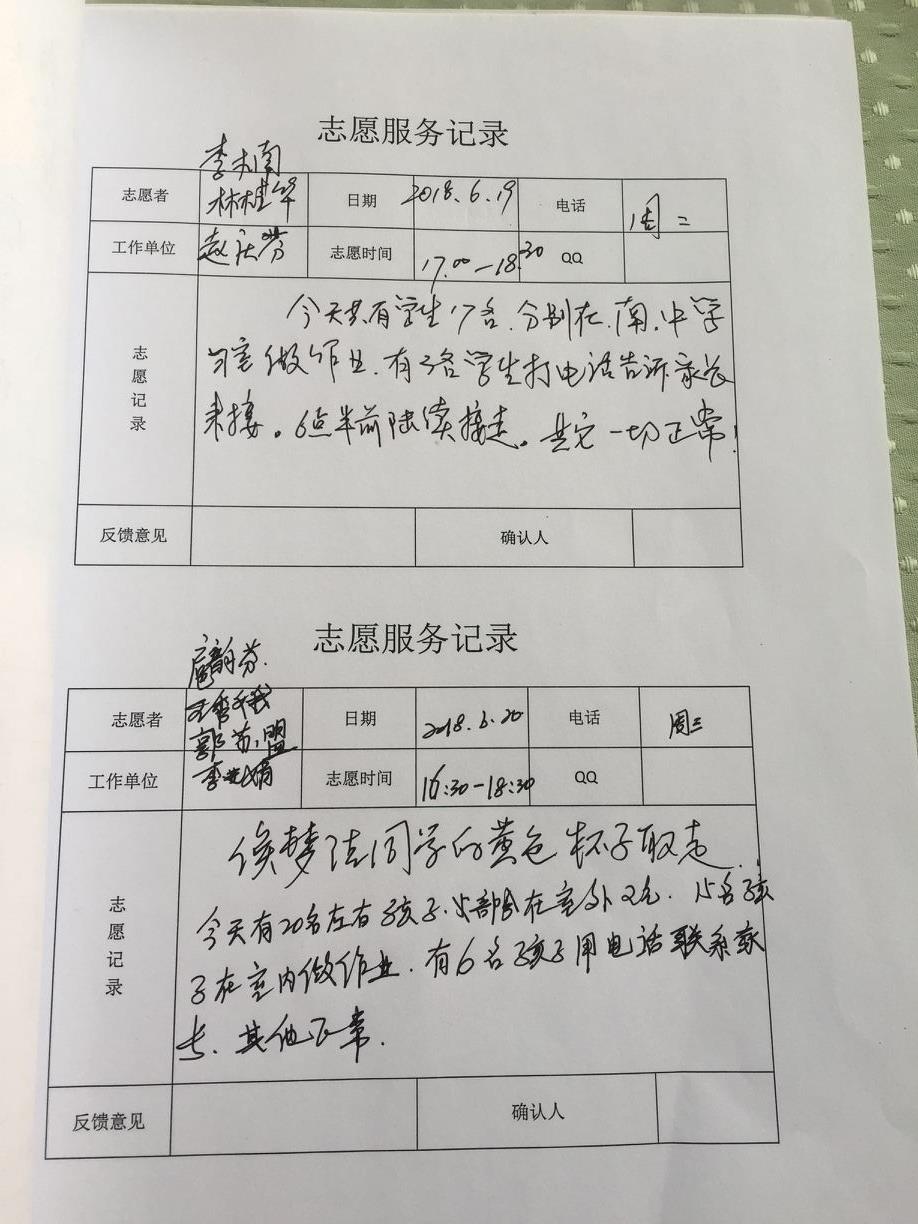 志愿服务记录
李木南
志愿者 林桂华 日期 2018.6.19 电话 周二
工作单位 赵庆芬 志愿时间 17.00-18:30 QQ
今天共有学生17名.分别在.南.中学
习室做作业.有3名学生打电话告诉家长
来接。6点半前陆续接走。其它一切正常!
志愿记录
反馈意见 确认人
志愿服务记录
芬.
志愿者 日期 2018.6.20 电话 周三
郭苏盟
工作单位 李 娟 志愿时间 16:30-18:30 QQ
侯梦洁同学的黄色杯子取走.
今天有20名左右孩子.小部分在室外 .15名孩
子在室内做作业.有6名孩子用电话联系家
长、其他正常.
志愿记录
反馈意见 确认人